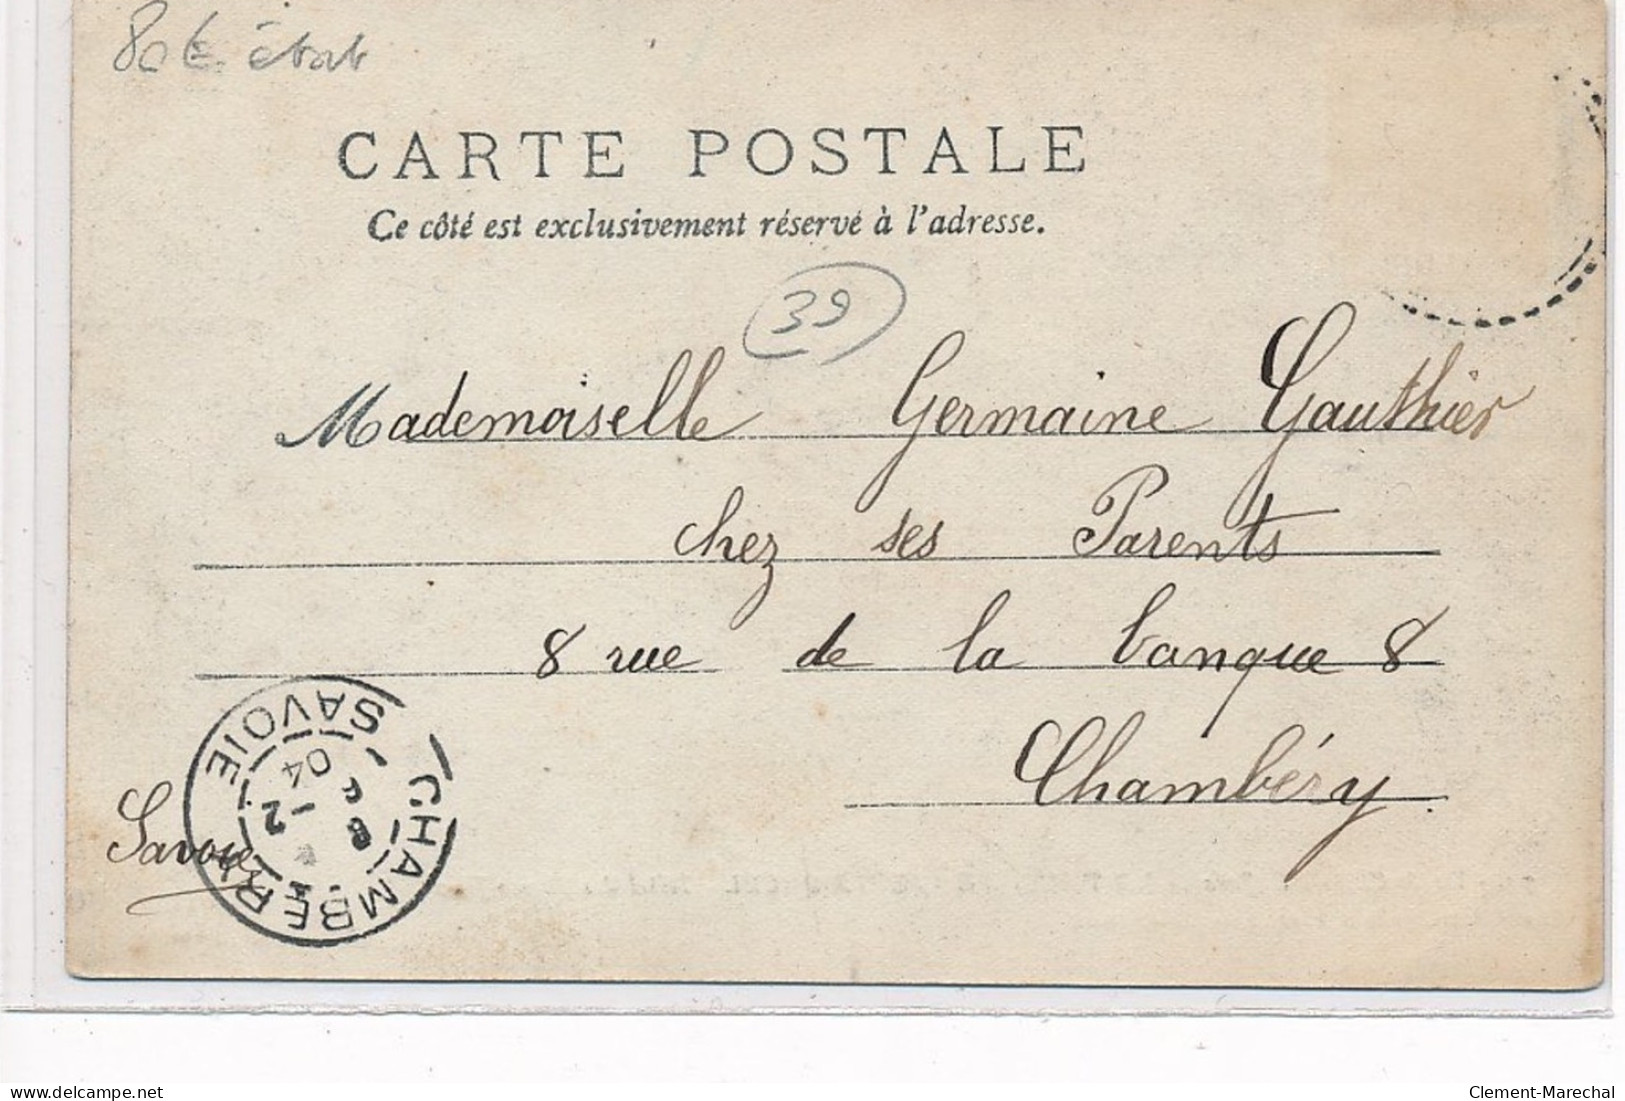 80€ état
CARTE POSTALE
Ce côté est exclusivement réservé à l'adresse.
39
Mademoiselle Germaine Gauthier
chez ses Parents
8 rue de la banque 8
Chambéry
Savoie
CHAMBERY
SAVOIE
8
-2
04
delcampe.net
Clement-Marechal